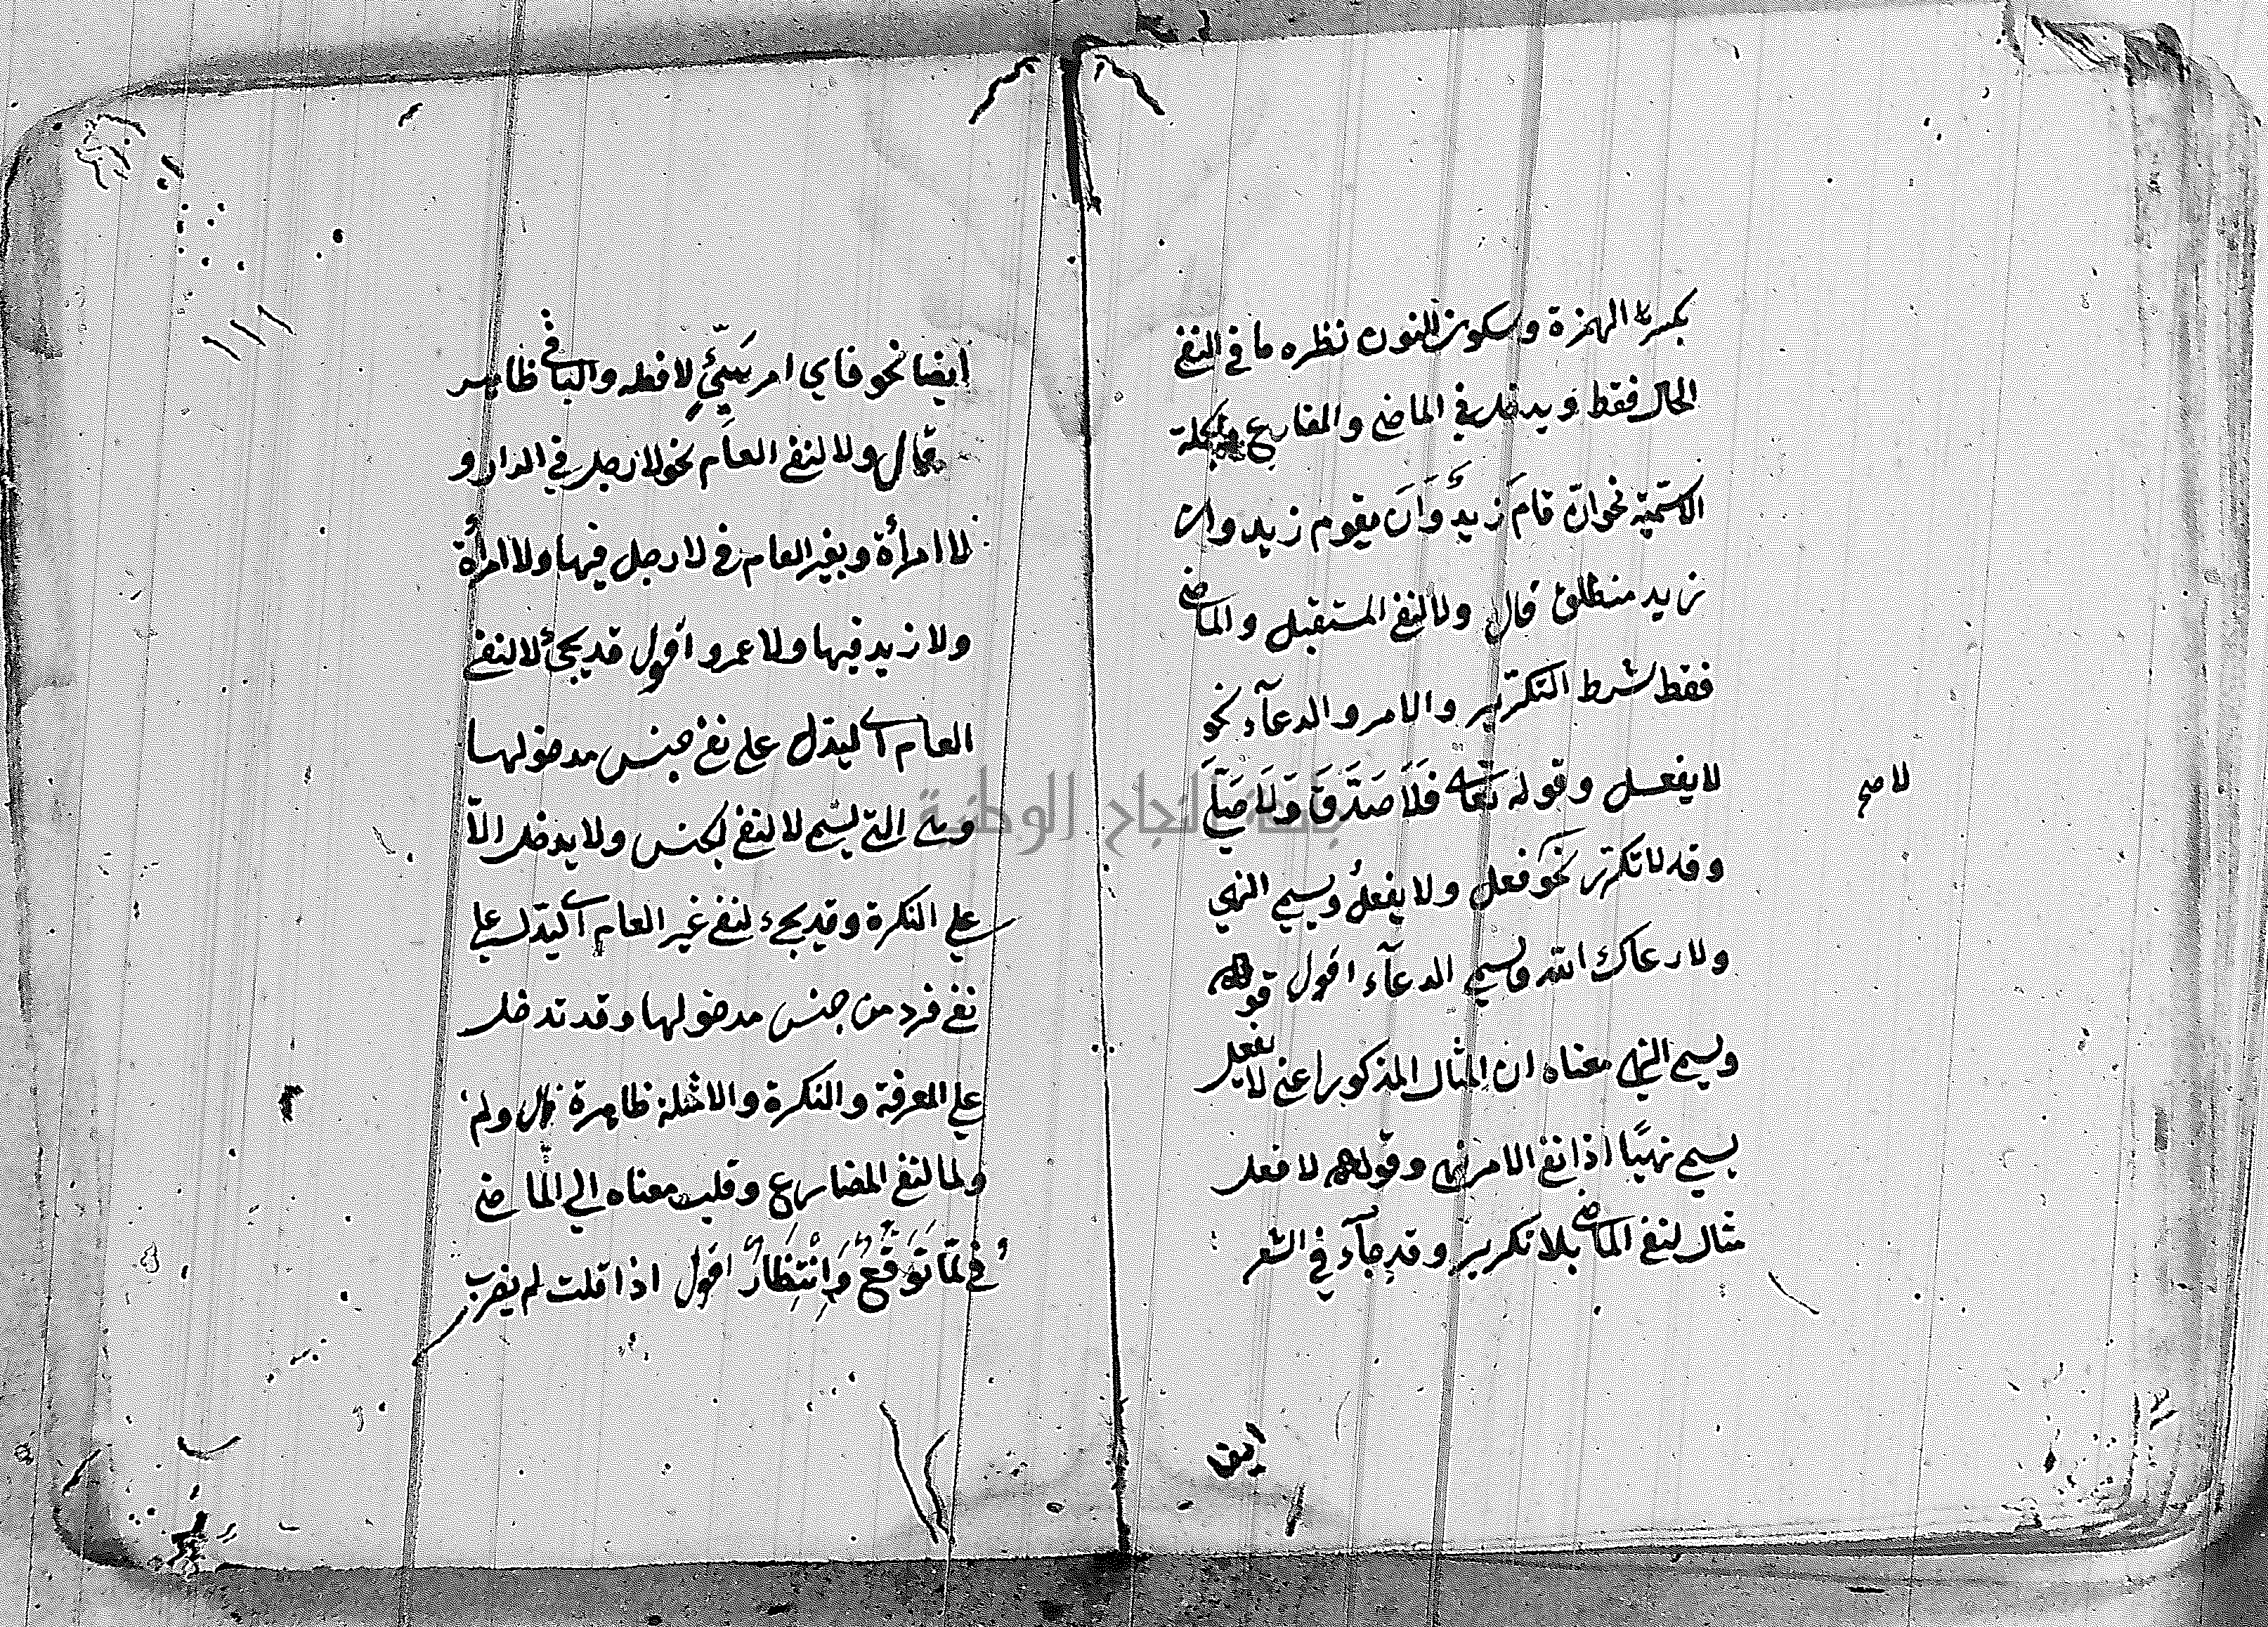 بكسر الهمزة وسكون النون نظره ما في النفي
الحال فقط ويدخل في الماضي والمضارع والجملة
الاسمية نحو ان قام زيد وان يقوم زيد وان
زيد منطلق قال ولا لنفي المستقبل والماضي
فقط شرط التكرير والامر والدعآء نحو
لا يفعل وقوله تعا فَلَا صَدَّقَ وَلَا صَلَّى
لا صح
وقد لا تكرر نحو فعل ولا يفعل ويسمي النهي
ولا رعاك الله ويسمي الدعآء اقول قوله
ويسمي النهي معناه ان المثال المذكور اعني لا يفعل
يسمي نهيًا اذا نفي الامر نهي وقوله لا فعل
مثال لنفي الماضي بلا تكرير وقد جآء في الشعر
ايضا
ايضا نحو فاي امر سَيِّئٍ لا فعله والباقي ظاهر
قال ولا لنفي العام نحو لا رجل في الدار و
لا امرأة وبغير العام في لا رجل فيها ولا امرأة
ولا زيد فيها ولا عمرو اقول قد يجئ لا لنفي
العام اي ليدل على نفي جنس مدخولها
وهي التي يسمي لا لنفي الجنس ولا يدخل الاّ
علي النكرة وقد يجيء لنفي غير العام اي ليدل علي
نفي فرد من جنس مدخولها وقد تدخل
علي المعرفة والنكرة والامثلة ظاهرة قال ولم
ولما لنفي المضارع وقلب معناه الي الماضي
وفي لمّا تَوَقُّعٌ وَاِنْتِظَارٌ اقول اذا قلت لم يضرب
جامعة النجاح الوطنية